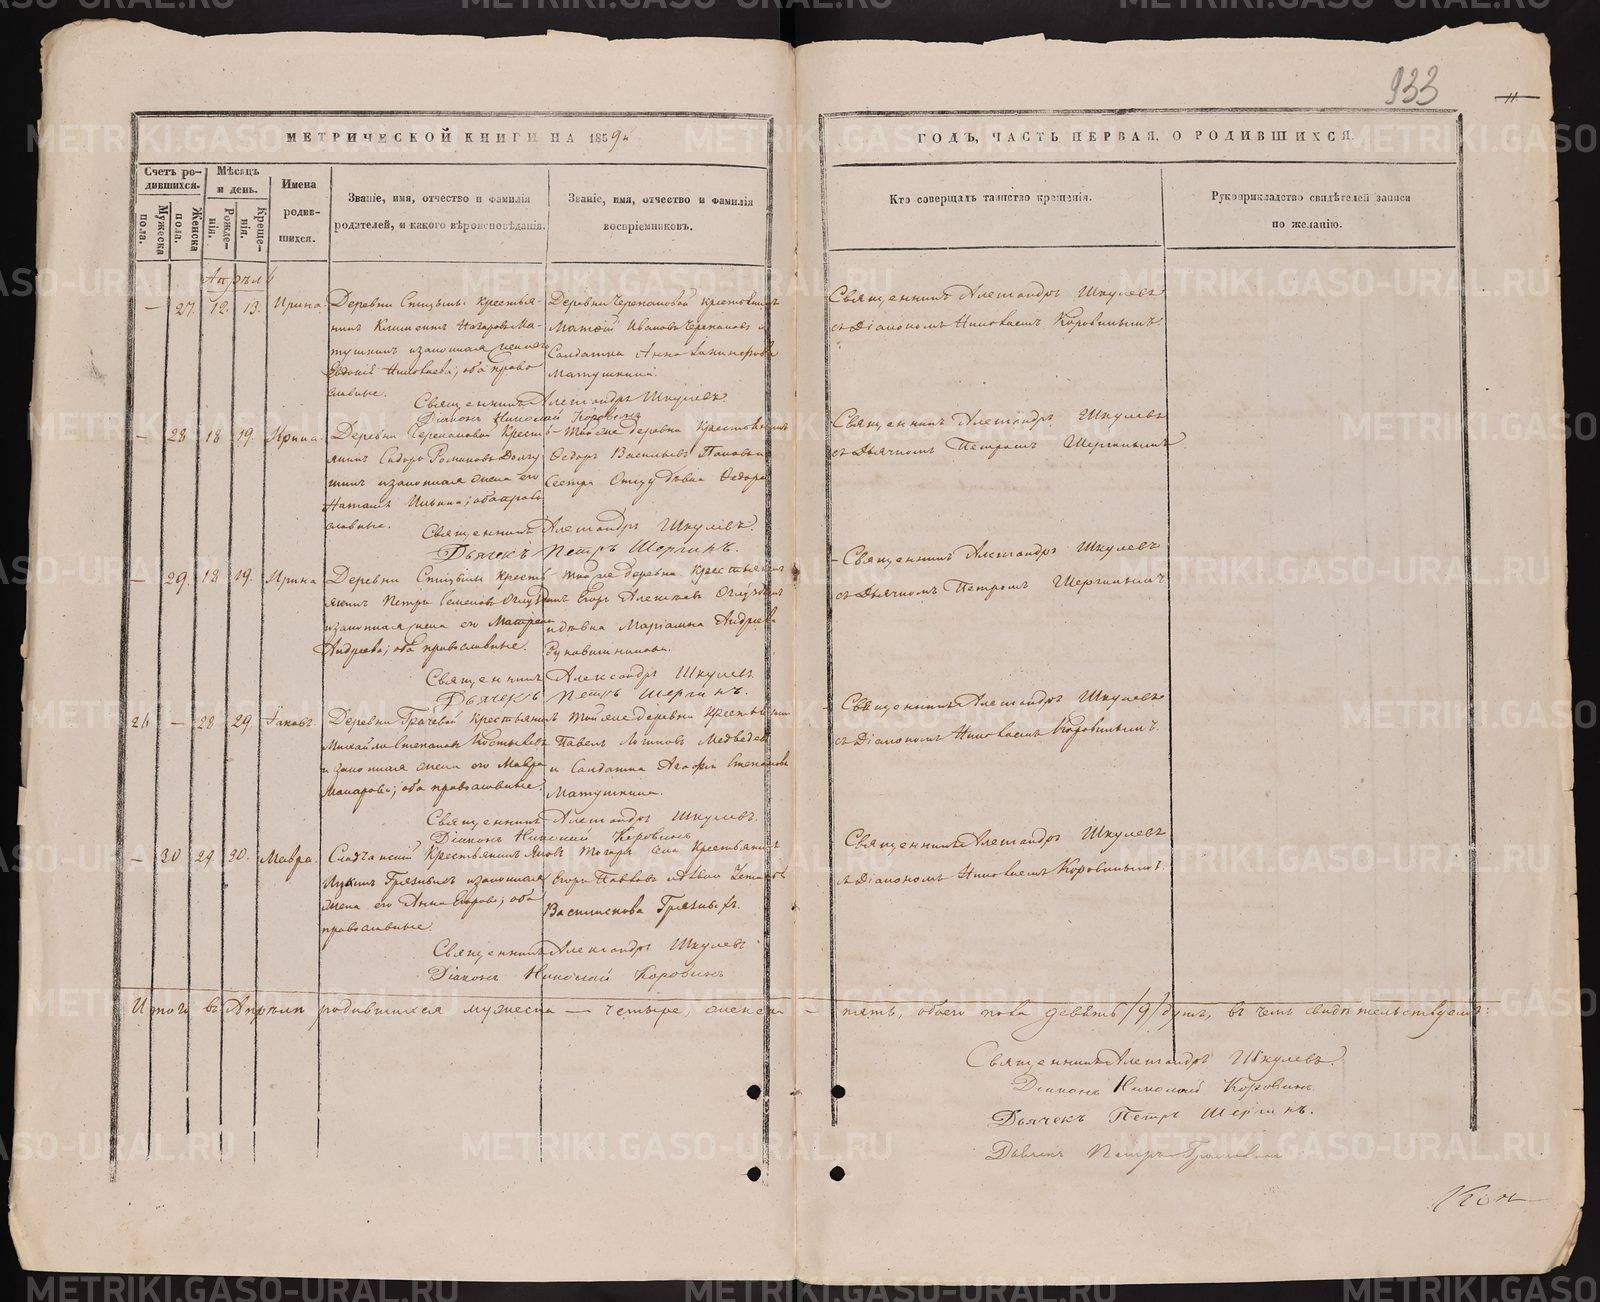 933
11
МЕТРИЧЕСКОЙ КНИГИ НА 1859й
ГОДЪ, ЧАСТЬ ПЕРВАЯ, О РОДИВШИХСЯ.
Счетъ родившихся.
Мужеска пола.
Женска пола.
Мѣсяцъ и день.
Рожденія.
Крещенія.
Имена родившихся.
Званіе, имя, отчество и фамилія
родителей, и какого вѣроисповѣданія.
Званіе, имя, отчество и фамилія
воспріемниковъ.
Кто совершалъ таинство крещенія.
Рукоприкладство свидѣтелей записи
по желанію.
Апрѣль
— 27. 12. 13. Ирина
Деревни Спицыной крестья-
нинъ Климентъ Назаровъ Ма-
тушкинъ и законная жена его
Евдокія Николаева; оба право
славные.
Деревни Черепановой крестьянинъ
Матѳій Ивановъ Черепановъ и
Солдатка Анна
Матушкина.
Священникъ Александръ Шкулевъ
съ Діакономъ Николаемъ Коровинымъ.
Священникъ Александръ Шкулевъ.
Діаконъ Николай Коровинъ
— 28 18 19. Ирина
Деревни Черепановой Кресть-
янинъ Сидоръ Романовъ Долгу
шинъ и законная жена его
Наталья Ильина; оба право
славные.
Той же деревни Крестьянинъ
Ѳедоръ Васильевъ Пановъ и
Сестра дѣвка Ѳедора
Священникъ Александръ Шкулевъ
съ Дьячкомъ Петромъ Шергинымъ
Священникъ Александръ Шкулевъ.
Дьячекъ Петръ Шергинъ.
— 29. 18 19. Ирина
Деревни Спицыной кресть-
янинъ Петръ Семеновъ
и законная жена его Матрена
Андреева; оба православные.
Той же деревни Крестьянинъ
Егоръ Алексѣевъ
и дѣвка Маріамна Андреева
Рукавишникова.
Священникъ Александръ Шкулевъ
съ Дьячкомъ Петромъ Шергинымъ
Священникъ Александръ Шкулевъ.
Дьячекъ Петръ Шергинъ.
— 28 29. Іаковъ.
Деревни Грачевой Крестьянинъ
Михайло Степановъ Костылевъ
и законная жена его Мавра
Макарова; оба православные.
Той же деревни Крестьянинъ
Павелъ Логиновъ Медведевъ
и Солдатка Агафія Степанова
Матушкина.
Священникъ Александръ Шкулевъ
съ Діакономъ Николаемъ Коровинымъ.
Священникъ Александръ Шкулевъ.
Діаконъ Николай Коровинъ
— 30 29. 30. Мавра.
Крестьянинъ Яковъ
и законная
жена его Анна Егорова; оба
православные.
Тогожъ села Крестьянинъ
Егоръ Павловъ и дѣвка
Грязныхъ.
Священникъ Александръ Шкулевъ
съ Діакономъ Николаемъ Коровинымъ.
Священникъ Александръ Шкулевъ
Діаконъ Николай Коровинъ
Итого въ Апрѣлѣ родившихся мужеска — четыре, женска — пять, обоего пола девять /9/ душъ, въ чемъ свидѣтельствуемъ:
Священникъ Александръ Шкулевъ.
Діаконъ Николай Коровинъ
Дьячекъ Петръ Шергинъ.
Петръ
METRIKI.GASO-URAL.RU